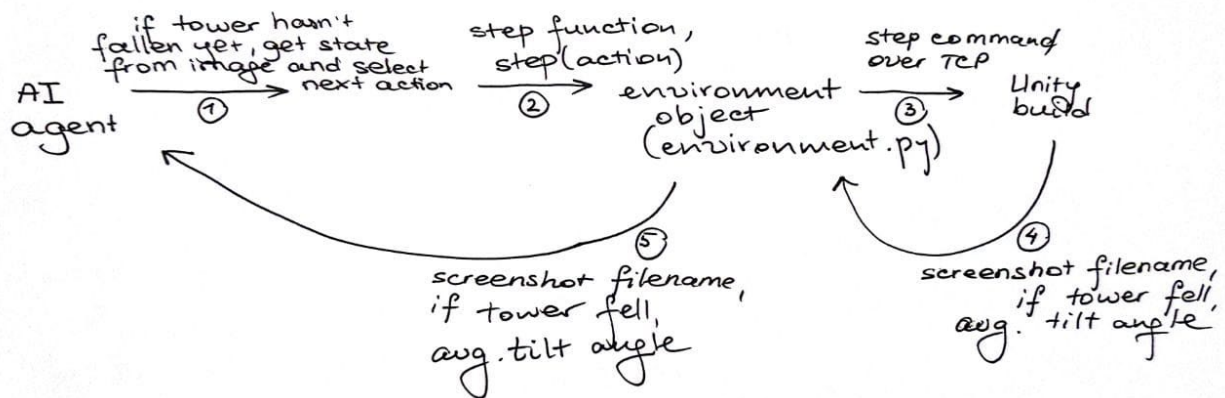 if tower hasn't
fallen yet, get state
from image and select
next action
AI
agent
①
step function,
step(action)
②
environment
object
(environment.py)
step command
over TCP
③
Unity
build
④
screenshot filename,
if tower fell,
avg. tilt angle
⑤
screenshot filename,
if tower fell,
avg. tilt angle